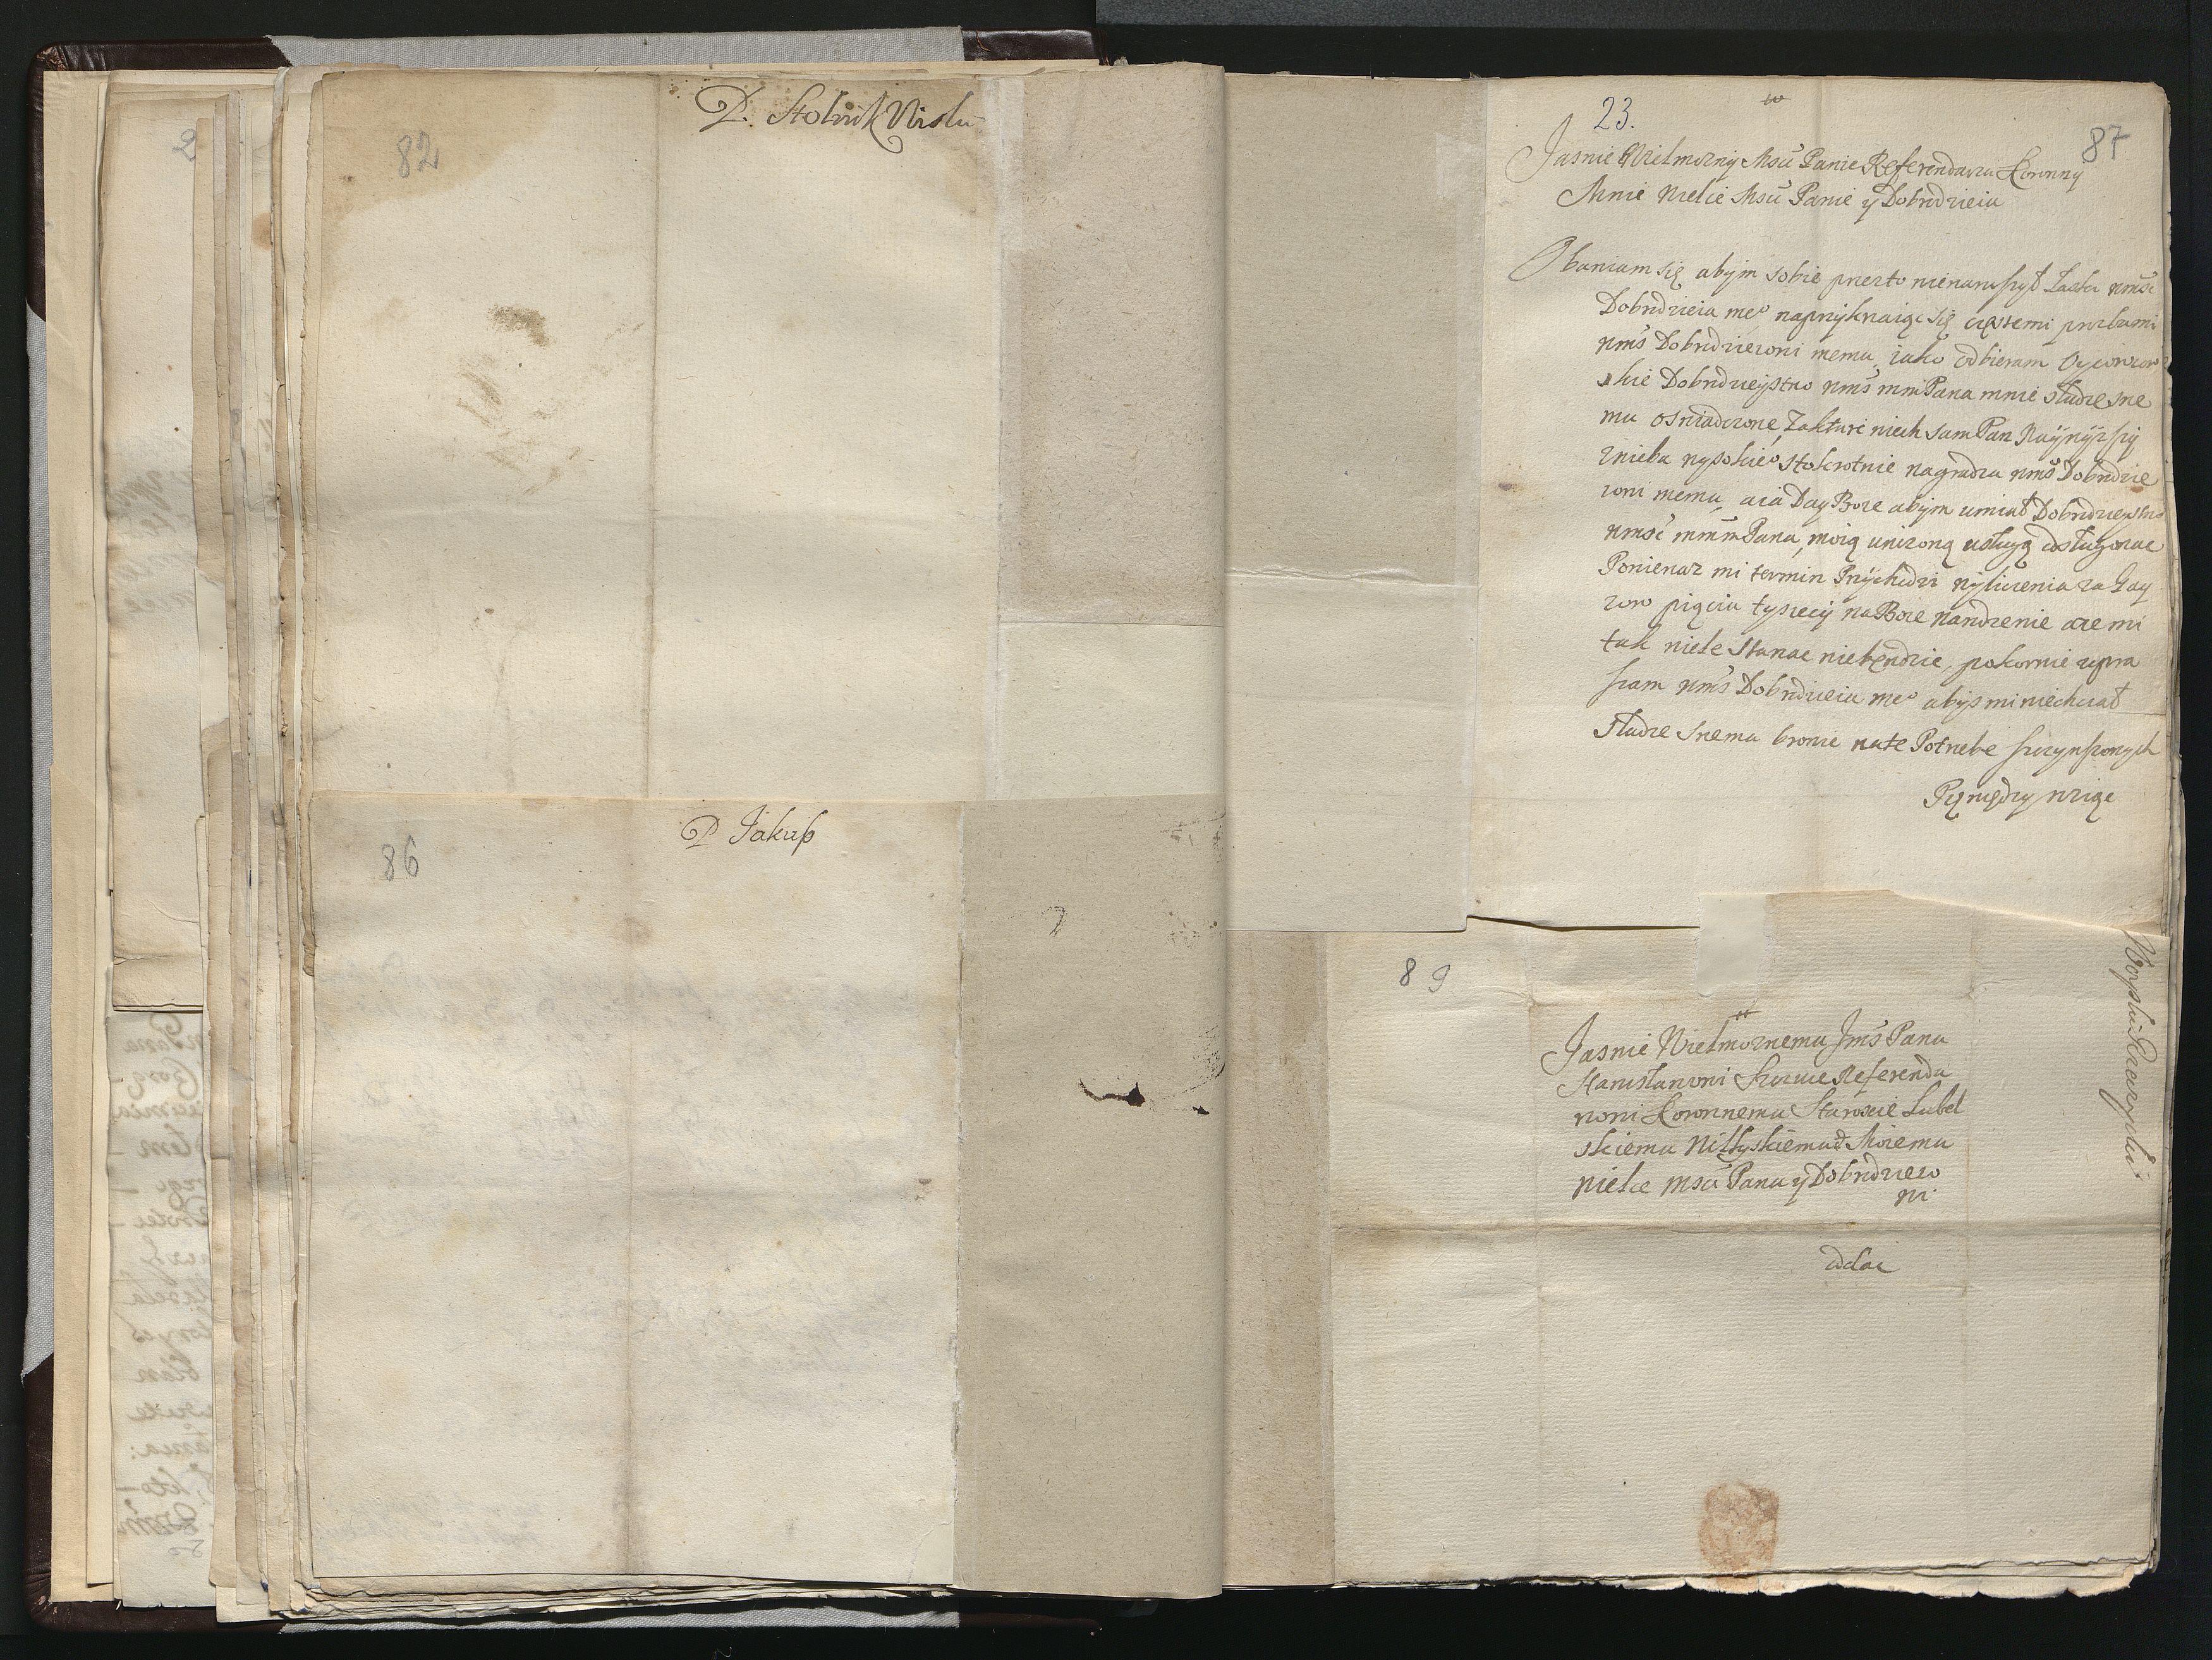 82
P. Stolnik Wislu
86
P Jakub
23.
87
Jasnie Wielmożny Msći Panie Referendarzu Koronny
Mnie Wielce Msći Panie y Dobrodzieiu
Obawiam się abym sobie przezto nienaruszył Łaski wmść
Dobrodzieia meo naprzykrzaiąc się częstemi prozbami
wmś Dobrodzieiowi memu, iako odbieram Oycowzow
skie Dobrodzieystwo wmś mmPana mnie słudze swe
mu oswiadczone, Zakture niech sam Pan Naywyższy
znieba wysokieo stokrotnie nagradza wmś Dobrodzie
iowi memu, aia Day Boże abym umiał Dobrodzieystwo
wmść mmmPana, moią unizoną usługą odsługowac
Poniewaz mi termin Przychodzi wyliczenia za Gay
zow pięciu tysięcy na Boze Narodzenie a ze mi
tak wiele Stanac niebęndzie, pokornie upra
szam wmś Dobrodzieia meo abyś mi niechciał
Słudze Swemu bronic nate Potrzebe
Pęniędzy wziąc
89
Jasnie Wielmoznemu Jmś Panu
Stanisławowi Szczuce Referenda
rzowi Koronnemu Staroscie Lubel
skiemu Moiemu
wielce Msći Panu y Dobrodzieio
wi.
odac